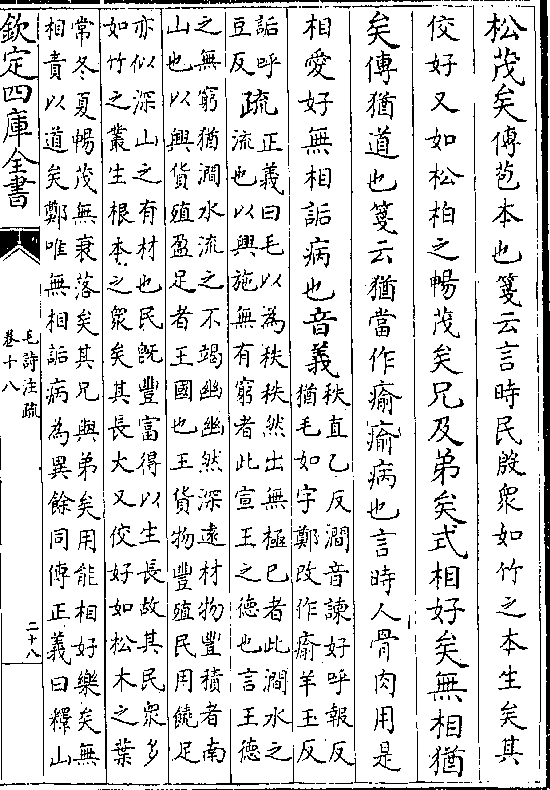 松茂矣傳苞本也箋云言時民殷衆如竹之本生矣其
佼好又如松柏之暢茂矣兄及弟矣式相好矣無相猶
矣傳猶道也箋云猶當作瘉瘉病也言時人骨肉用是
相愛好無相詬病也音義秩直乙反澗音諫好呼報反
猶毛如字鄭改作瘉羊玉反
詬呼
豆反疏正義曰毛以為秩秩然出無極已者此澗水之
流也以興施無有窮者此宣王之德也言王德
之無窮猶澗水流之不竭幽幽然深遠材物豐積者南
山也以興貨殖盈足者王國也王貨物豐殖民用饒足
亦似深山之有材也民既豐富得以生長故其民衆多
如竹之叢生根本之衆矣其長大又佼好如松木之葉
常冬夏暢茂無衰落矣其兄與弟矣用能相好樂矣無
相責以道矣鄭唯無相詬病為異餘同傳正義曰釋山
欽定四庫全書
毛詩注疏
卷十八
二十八